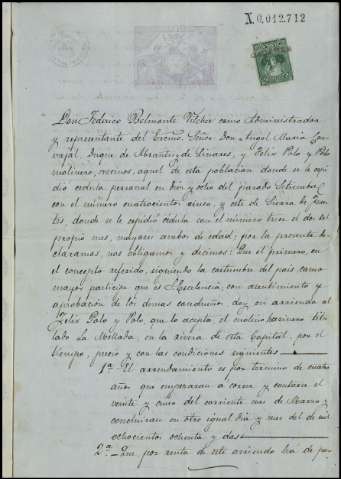 X.0,012,712
Don Federico Belmonte Vilches como Administrador
y representante del Excmo. Señor Don Angel Maria Car-
vajal, Duque de Abrantes y de Linares, y Felix Polo y Polo
molinero, vecinos, aquel de esta poblacion donde se le expi-
dió cedula personal en diez y ocho del pasado Setiembre
con el numero cuatrocientos cinco, y este de Sierra de Fuen-
tes, donde se le expidió cédula con el número tres el dos del
propio mes, mayores ambos de edad; por la presente de-
claramos, nos obligamos y decimos: Que el primero, en
el concepto referido, siguiendo la costumbre del pais como
mayor participe que es S. Excelencia, con asentimiento y
aprobacion de los demas condueños, doy en arriendo al
Felix Polo y Polo, que lo acepta el molino harinero titu-
lado La Mollada, en la rivera de esta Capital, por el
tiempo, precio y con las condiciones siguientes
1ª El arrendamiento es por termino de cuatro
años que empezaran a correr y contarse el
veinte y cinco del corriente mes de Marzo y
concluiran en otro igual dia y mes del de mil
ochocientos ochenta y dos
2ª Que por renta de este arriendo ha de pa-